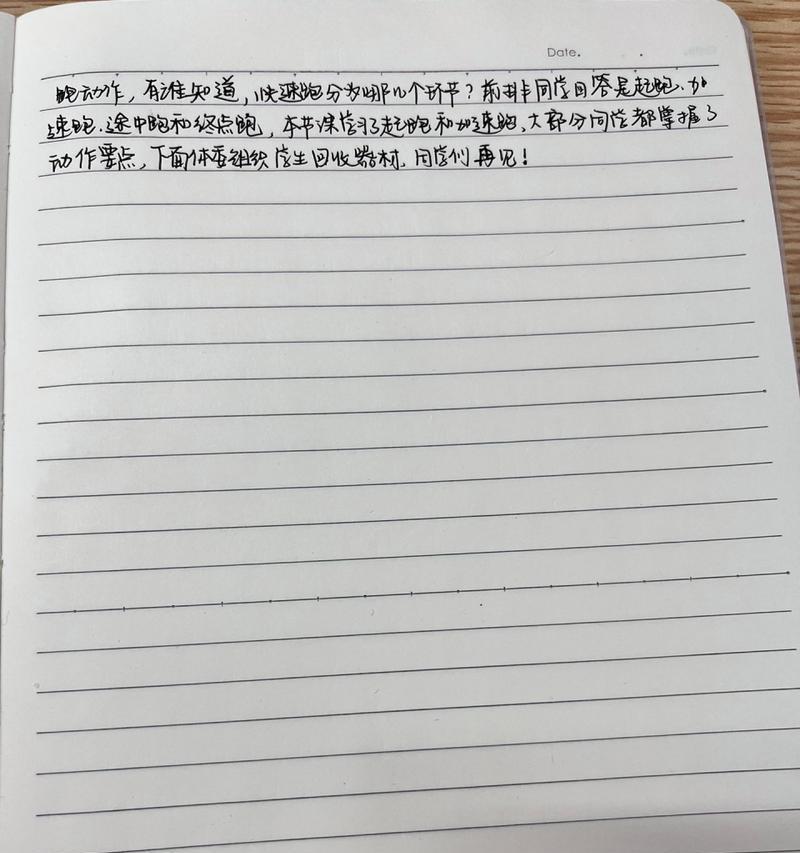 Date.
跑动作，有谁知道，快速跑分为哪几个环节？前排同学回答是起跑、加
速跑、途中跑和终点跑，本节课学习了起跑和加速跑，大部分同学都掌握了
动作要点，下面体委组织学生回收器材，同学们再见！